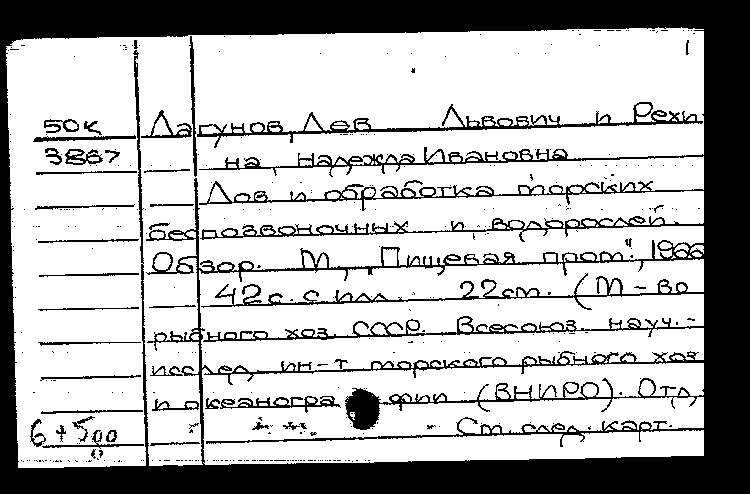 1
50К Лагунов, Лев Львович и Рехи-
3867 на, Надежда Ивановна
Лов и обработка морских
беспозвоночных и водорослей.
Обзор. М, „Пищевая пром", 1966
42с. с илл. 22см. (М-во
рыбного хоз. СССР. Всесоюз. науч.-
исслед. ин-т морского рыбного хоз
и океаногра фии (ВНИРО). Отд,
6+500 Ст. след. карт.
0